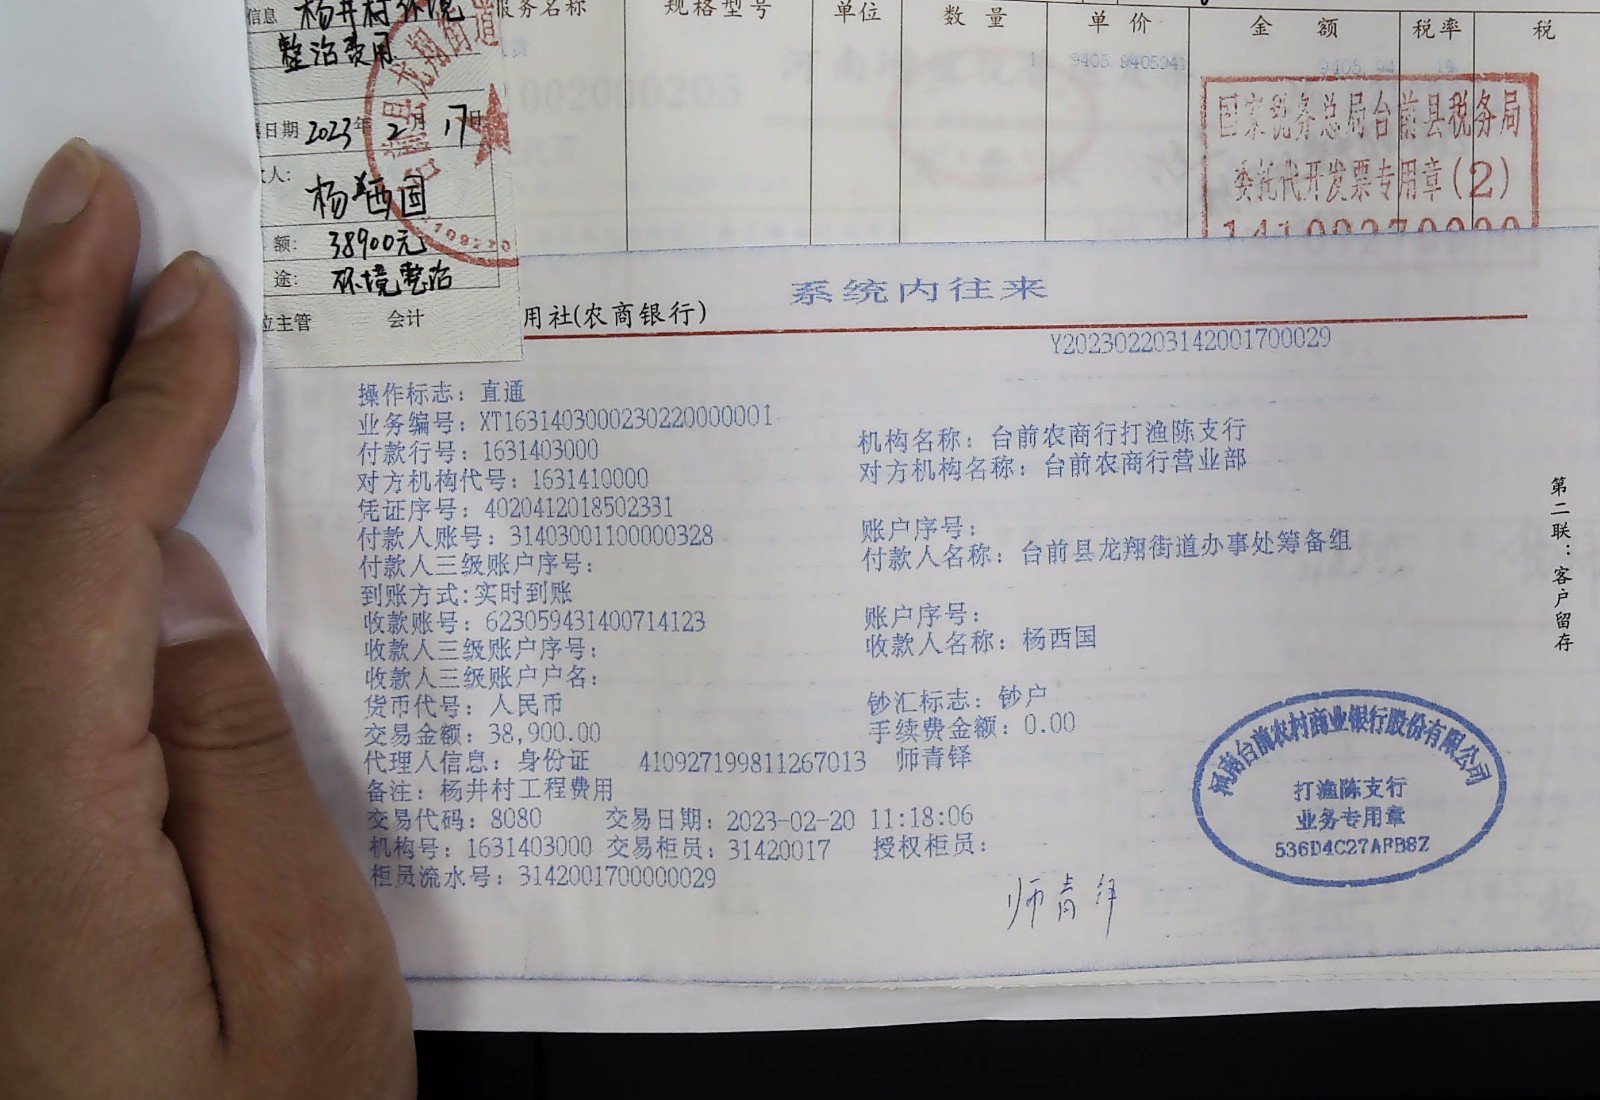 信息 杨井村环境
整治费用
日期 2023年2月17日
人:
杨西国
额: 38900元
途: 环境整治
位主管 会计
服务名称 规格型号 单位 数量 单价 金额 税率 税
1 9405.940594 9405.94 1%
002000205
国家税务总局台前县税务局
委托代开发票专用章(2)
龙翔街道
系统内往来
用社(农商银行)
Y202302203142001700029
操作标志: 直通
业务编号: XT1631403000230220000001
付款行号: 1631403000
机构名称: 台前农商行打渔陈支行
对方机构代号: 1631410000
对方机构名称: 台前农商行营业部
凭证序号: 4020412018502331
付款人账号: 31403001100000328
账户序号:
付款人三级账户序号:
付款人名称: 台前县龙翔街道办事处筹备组
到账方式:实时到账
收款账号: 623059431400714123
账户序号:
收款人三级账户序号:
收款人名称: 杨西国
收款人三级账户户名:
货币代号: 人民币
钞汇标志: 钞户
交易金额: 38,900.00
手续费金额: 0.00
代理人信息: 身份证 410927199811267013 师青铎
备注: 杨井村工程费用
交易代码: 8080 交易日期: 2023-02-20 11:18:06
机构号: 1631403000 交易柜员: 31420017 授权柜员:
柜员流水号: 3142001700000029
第二联:客户留存
河南台前农村商业银行股份有限公司
打渔陈支行
业务专用章
536D4C27AFB8Z
师青铎